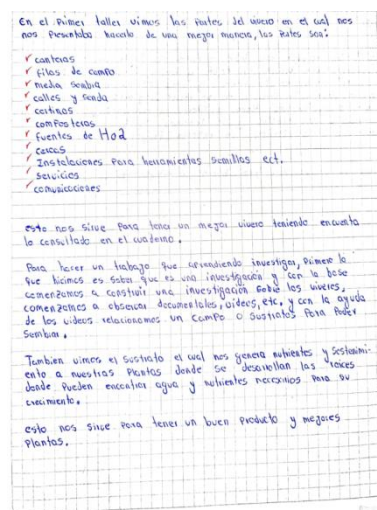 En el Primer taller vimos las Partes del vivero en el cual nos
nos Presentaba hacerlo de una mejor manera, las Partes son:
canteros
filas de campo
media sombra
calles y senda
cortinas
composteras
fuentes de Ho2
cercas
Instalaciones Para herramientas semillas ect.
Servicios
comunicaciones
esto nos sirve Para tener un mejor vivero teniendo encuenta
lo consultado en el cuaderno.
Para hacer un trabajo que aprendiendo investigar, Primero lo
que hicimos es saber que es una investigación y con la base
comenzamos a construir una investigación sobre los viveres,
comenzamos a observar documentales, videos, etc, y con la ayuda
de los videos relacionamos un campo o sustratos Para Poder
sembrar.
Tambien vimos el sustrato el cual nos genera nutrientes y sostenimi-
ento a nuestras Plantas donde se desarrollan las raices
donde Pueden encontrar agua y nutrientes necesarios Para su
crecimiento.
esto nos sirve Para tener un buen Producto y mejores
Plantas.